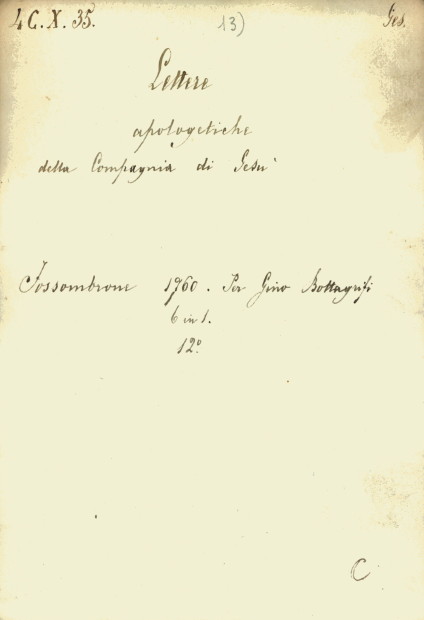 4 C. X. 35. 13) Ges.
Lettere
apologetiche
della Compagnia di Gesù
Fossombrone 1760. Per Gino Bottagrifi
6 in 1.
12º
C